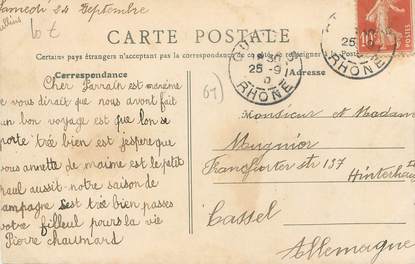 Samedi 24 Septembre
6t
CARTE POSTALE
Certains pays étrangers n'acceptant pas la correspondance de ce côté, se renseigner à la Poste
Correspondance
Adresse
Cher Parrain est mareme
vous dirait que nous avont fait
un bon voyage est que lon se
porte trée bien est jesperque
vous annette de maime est le petit
paul aussit notre saison de
campagne sest trée bien passes
votre filleul pours la vie
Pierre chaumard
30
25 -9
RHÔNE
25
RHÔNE
POSTES
10
69
Monsieur et Madame
Mugnier
Francforter str 137
Hinterhaus
Cassel
Allemagne